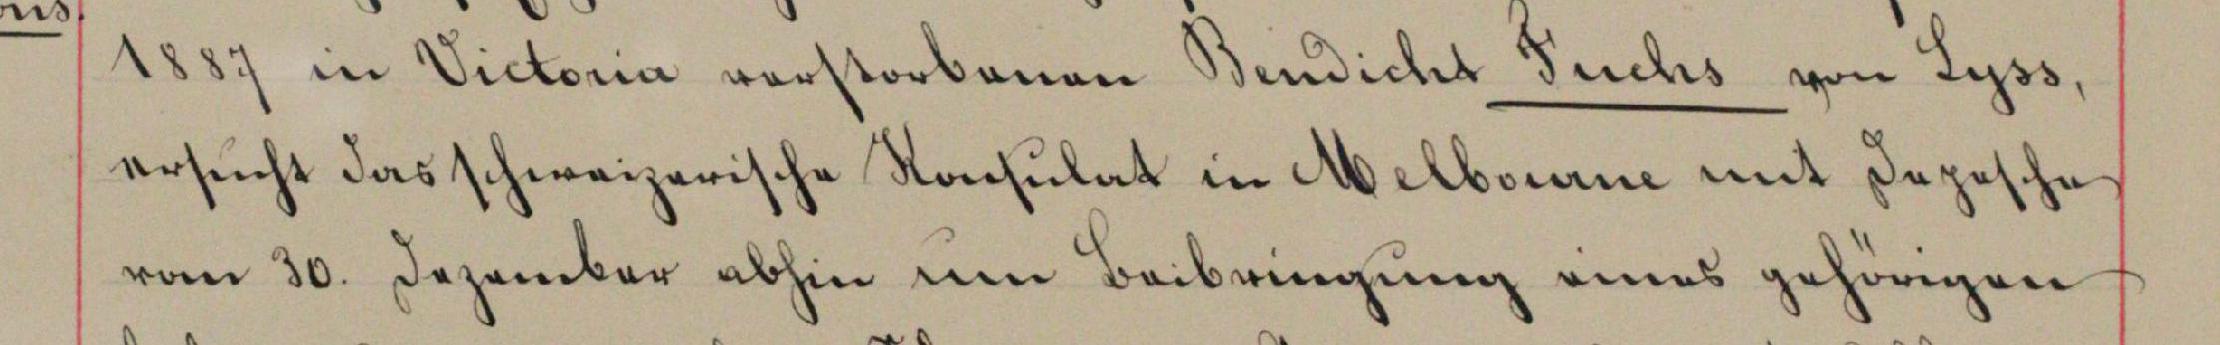 1887 in Victoria verstorbenen Bendicht Fuchs von Lyss,
ersucht das schweizerische Konsulat in Melbourne mit Depesche
vom 30. Dezember abhin um Beibringung eines gehörigen